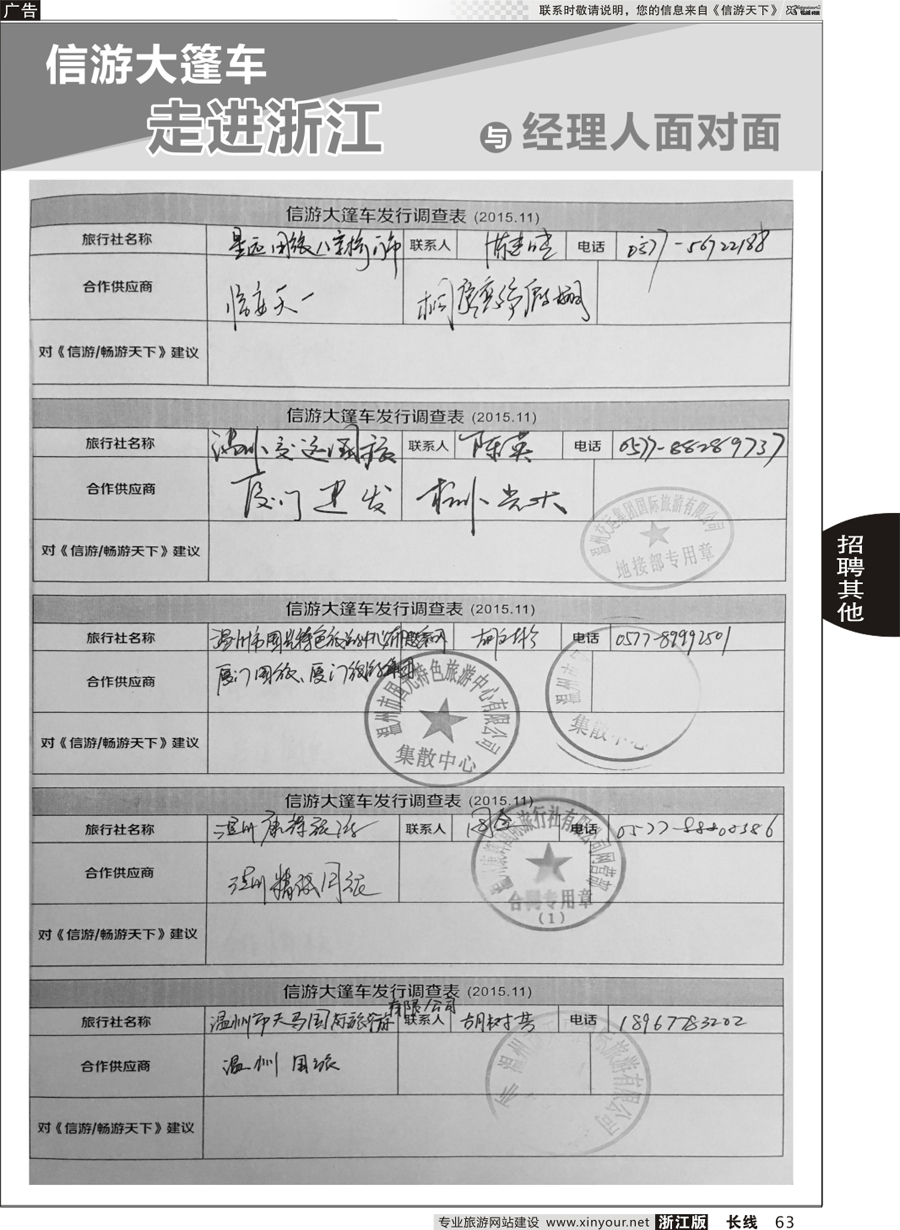 广告
联系时敬请说明，您的信息来自《信游天下》
信游大篷车
走进浙江
与 经理人面对面
信游大篷车发行调查表 (2015.11)
旅行社名称 联系人 电话 0577-56722188
合作供应商 临安天一
对《信游/畅游天下》建议
信游大篷车发行调查表 (2015.11)
旅行社名称 温州交运国旅 联系人 陈英 电话 0577-88289737
合作供应商 厦门建发 杭州光大
温州交运集团国际旅游有限公司
地接部专用章
对《信游/畅游天下》建议
信游大篷车发行调查表 (2015.11)
旅行社名称 温州市国光特色旅游中心 电话 0577-89992501
合作供应商 厦门国旅、厦门旅游集团
温州市国光特色旅游中心有限公司
集散中心
温州市
集散中心
对《信游/畅游天下》建议
信游大篷车发行调查表 (2015.11)
旅行社名称 温州康辉旅游 联系人 电话
旅行社有限公司
合作供应商 国旅
合同专用章
(1)
对《信游/畅游天下》建议
信游大篷车发行调查表 (2015.11)
有限公司
旅行社名称 温州市天马国内旅行社 联系人 胡树芸 电话 18967783202
合作供应商 温州国旅
旅游有限公司
对《信游/畅游天下》建议
招聘其他
专业旅游网站建设 www.xinyour.net 浙江版 长线 63